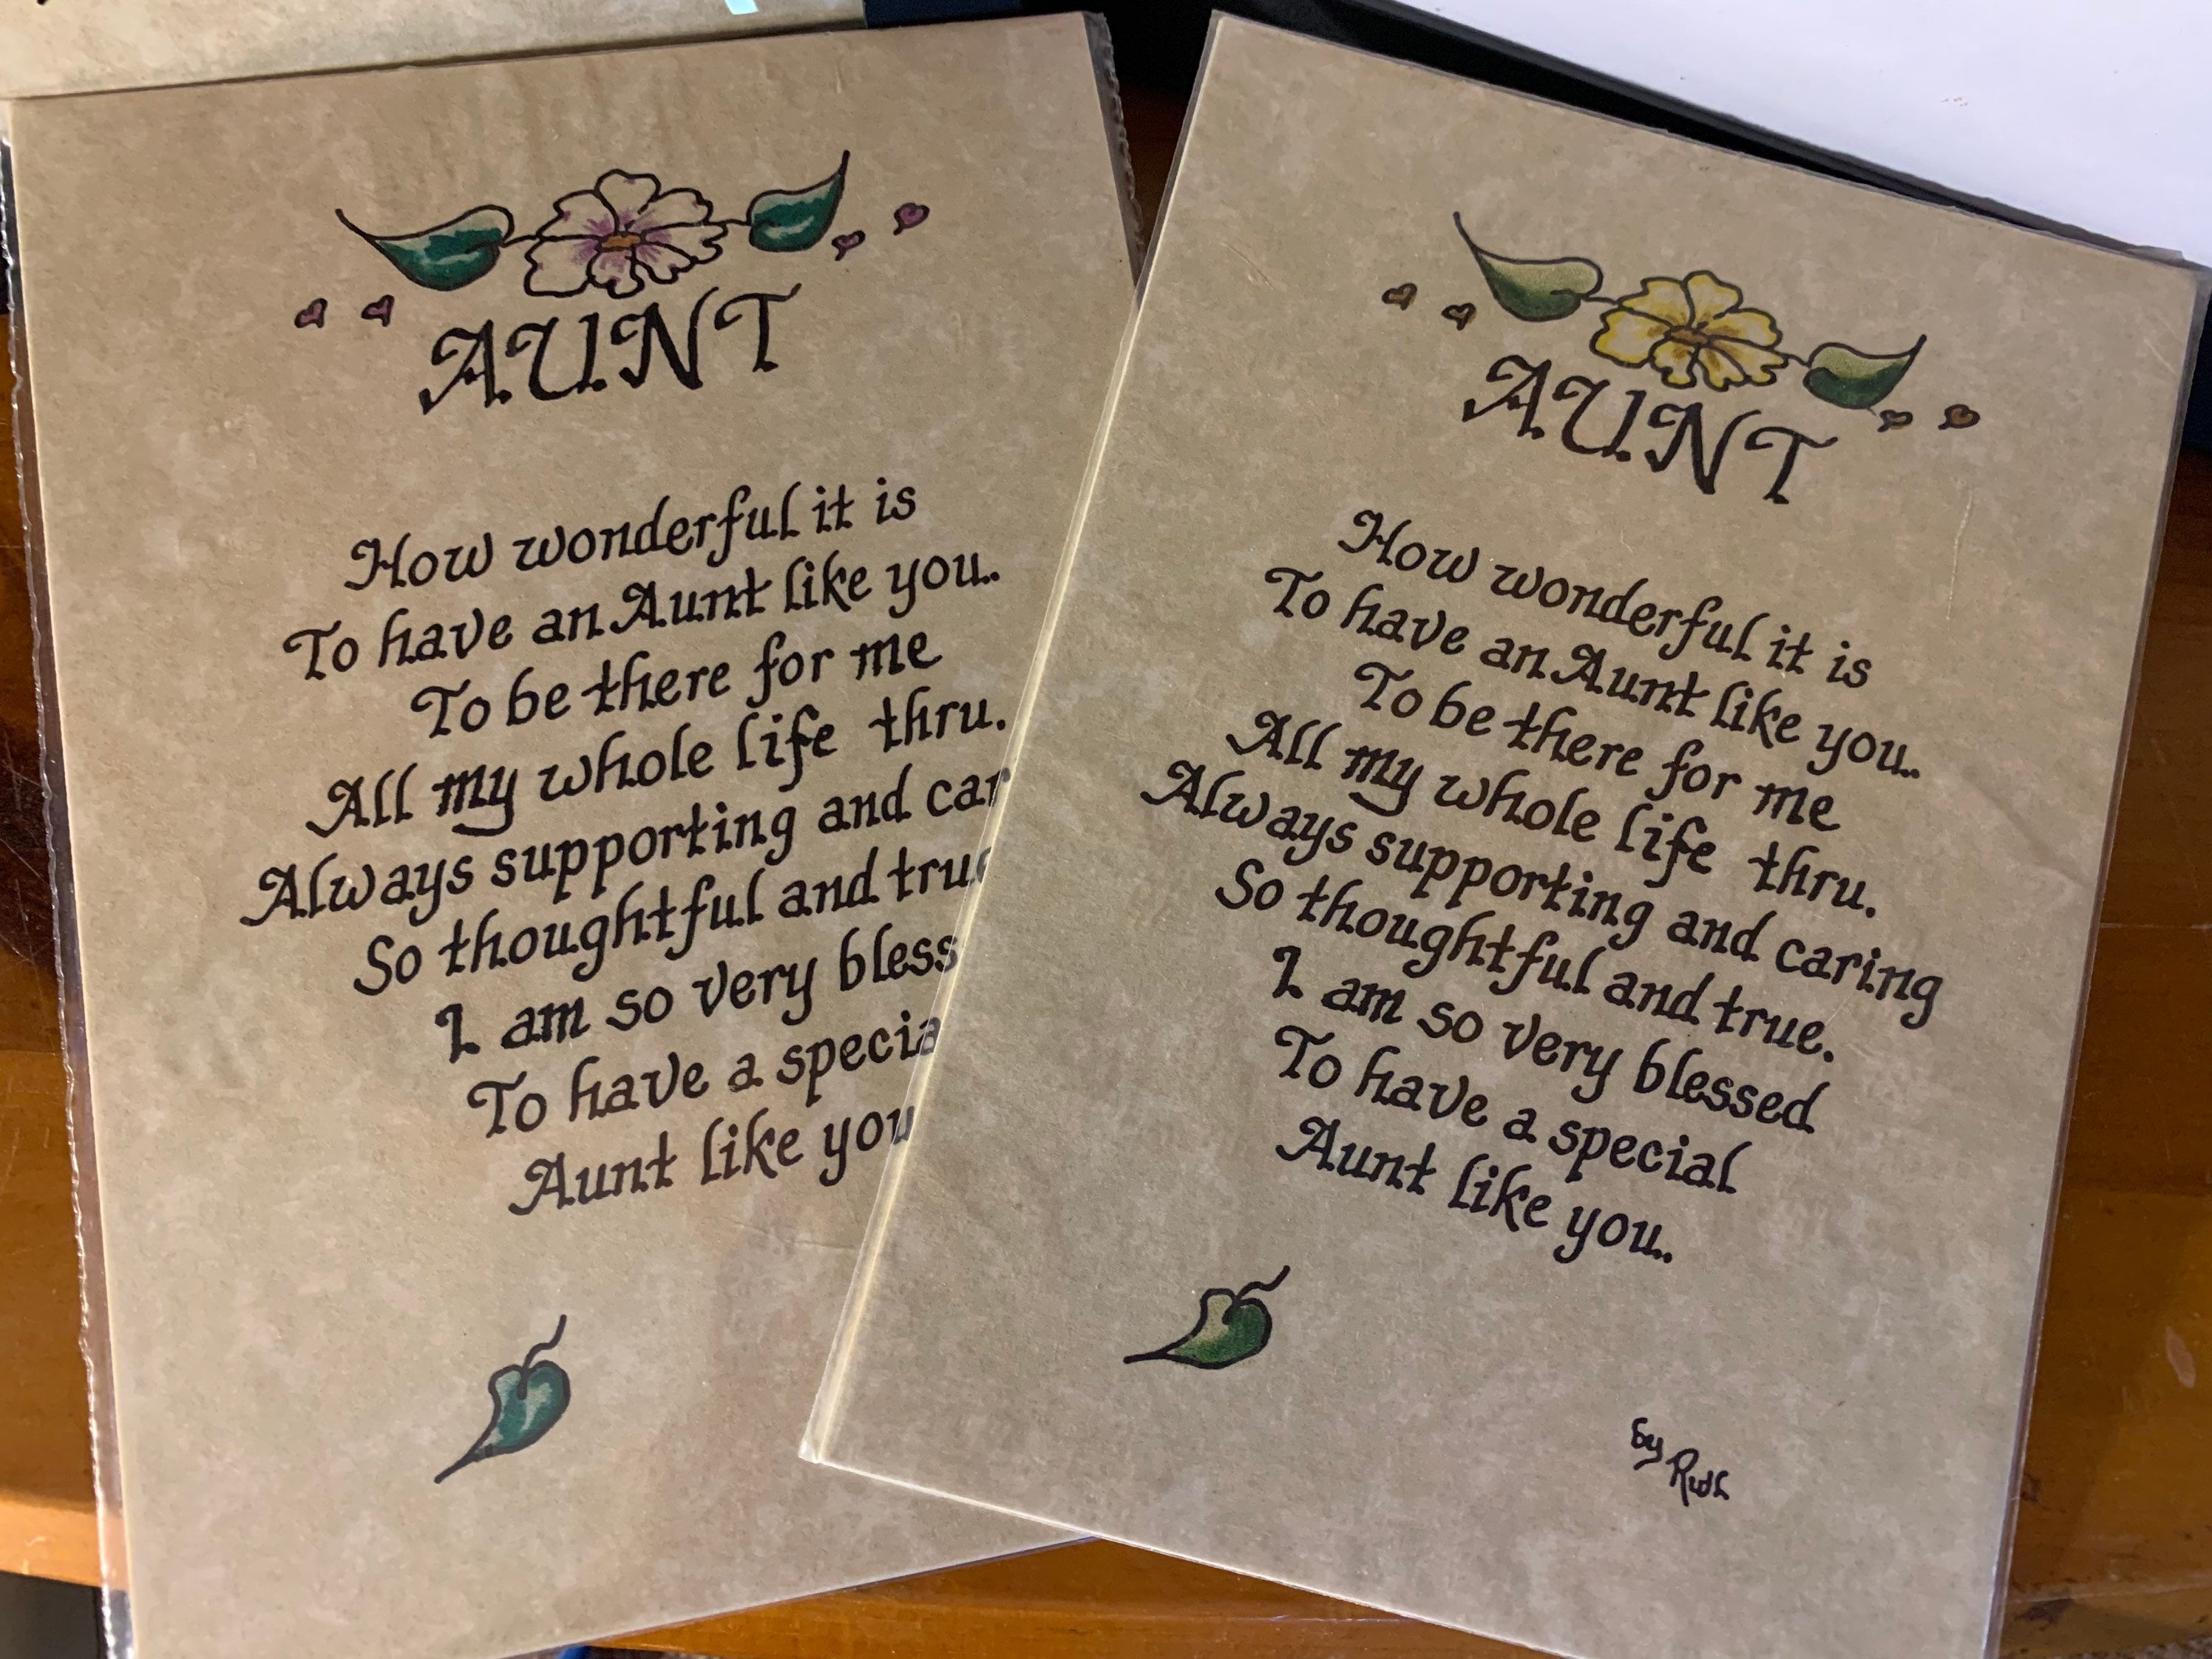 AUNT
How wonderful it is
To have an Aunt like you..
To be there for me
All my whole life thru.
Always supporting and car
So thoughtful and true
I am so very bless
To have a specia
Aunt like you
AUNT
How wonderful it is
To have an Aunt like you..
To be there for me
All my whole life thru.
Always supporting and caring
So thoughtful and true.
I am so very blessed
To have a special
Aunt like you..
by Ruth